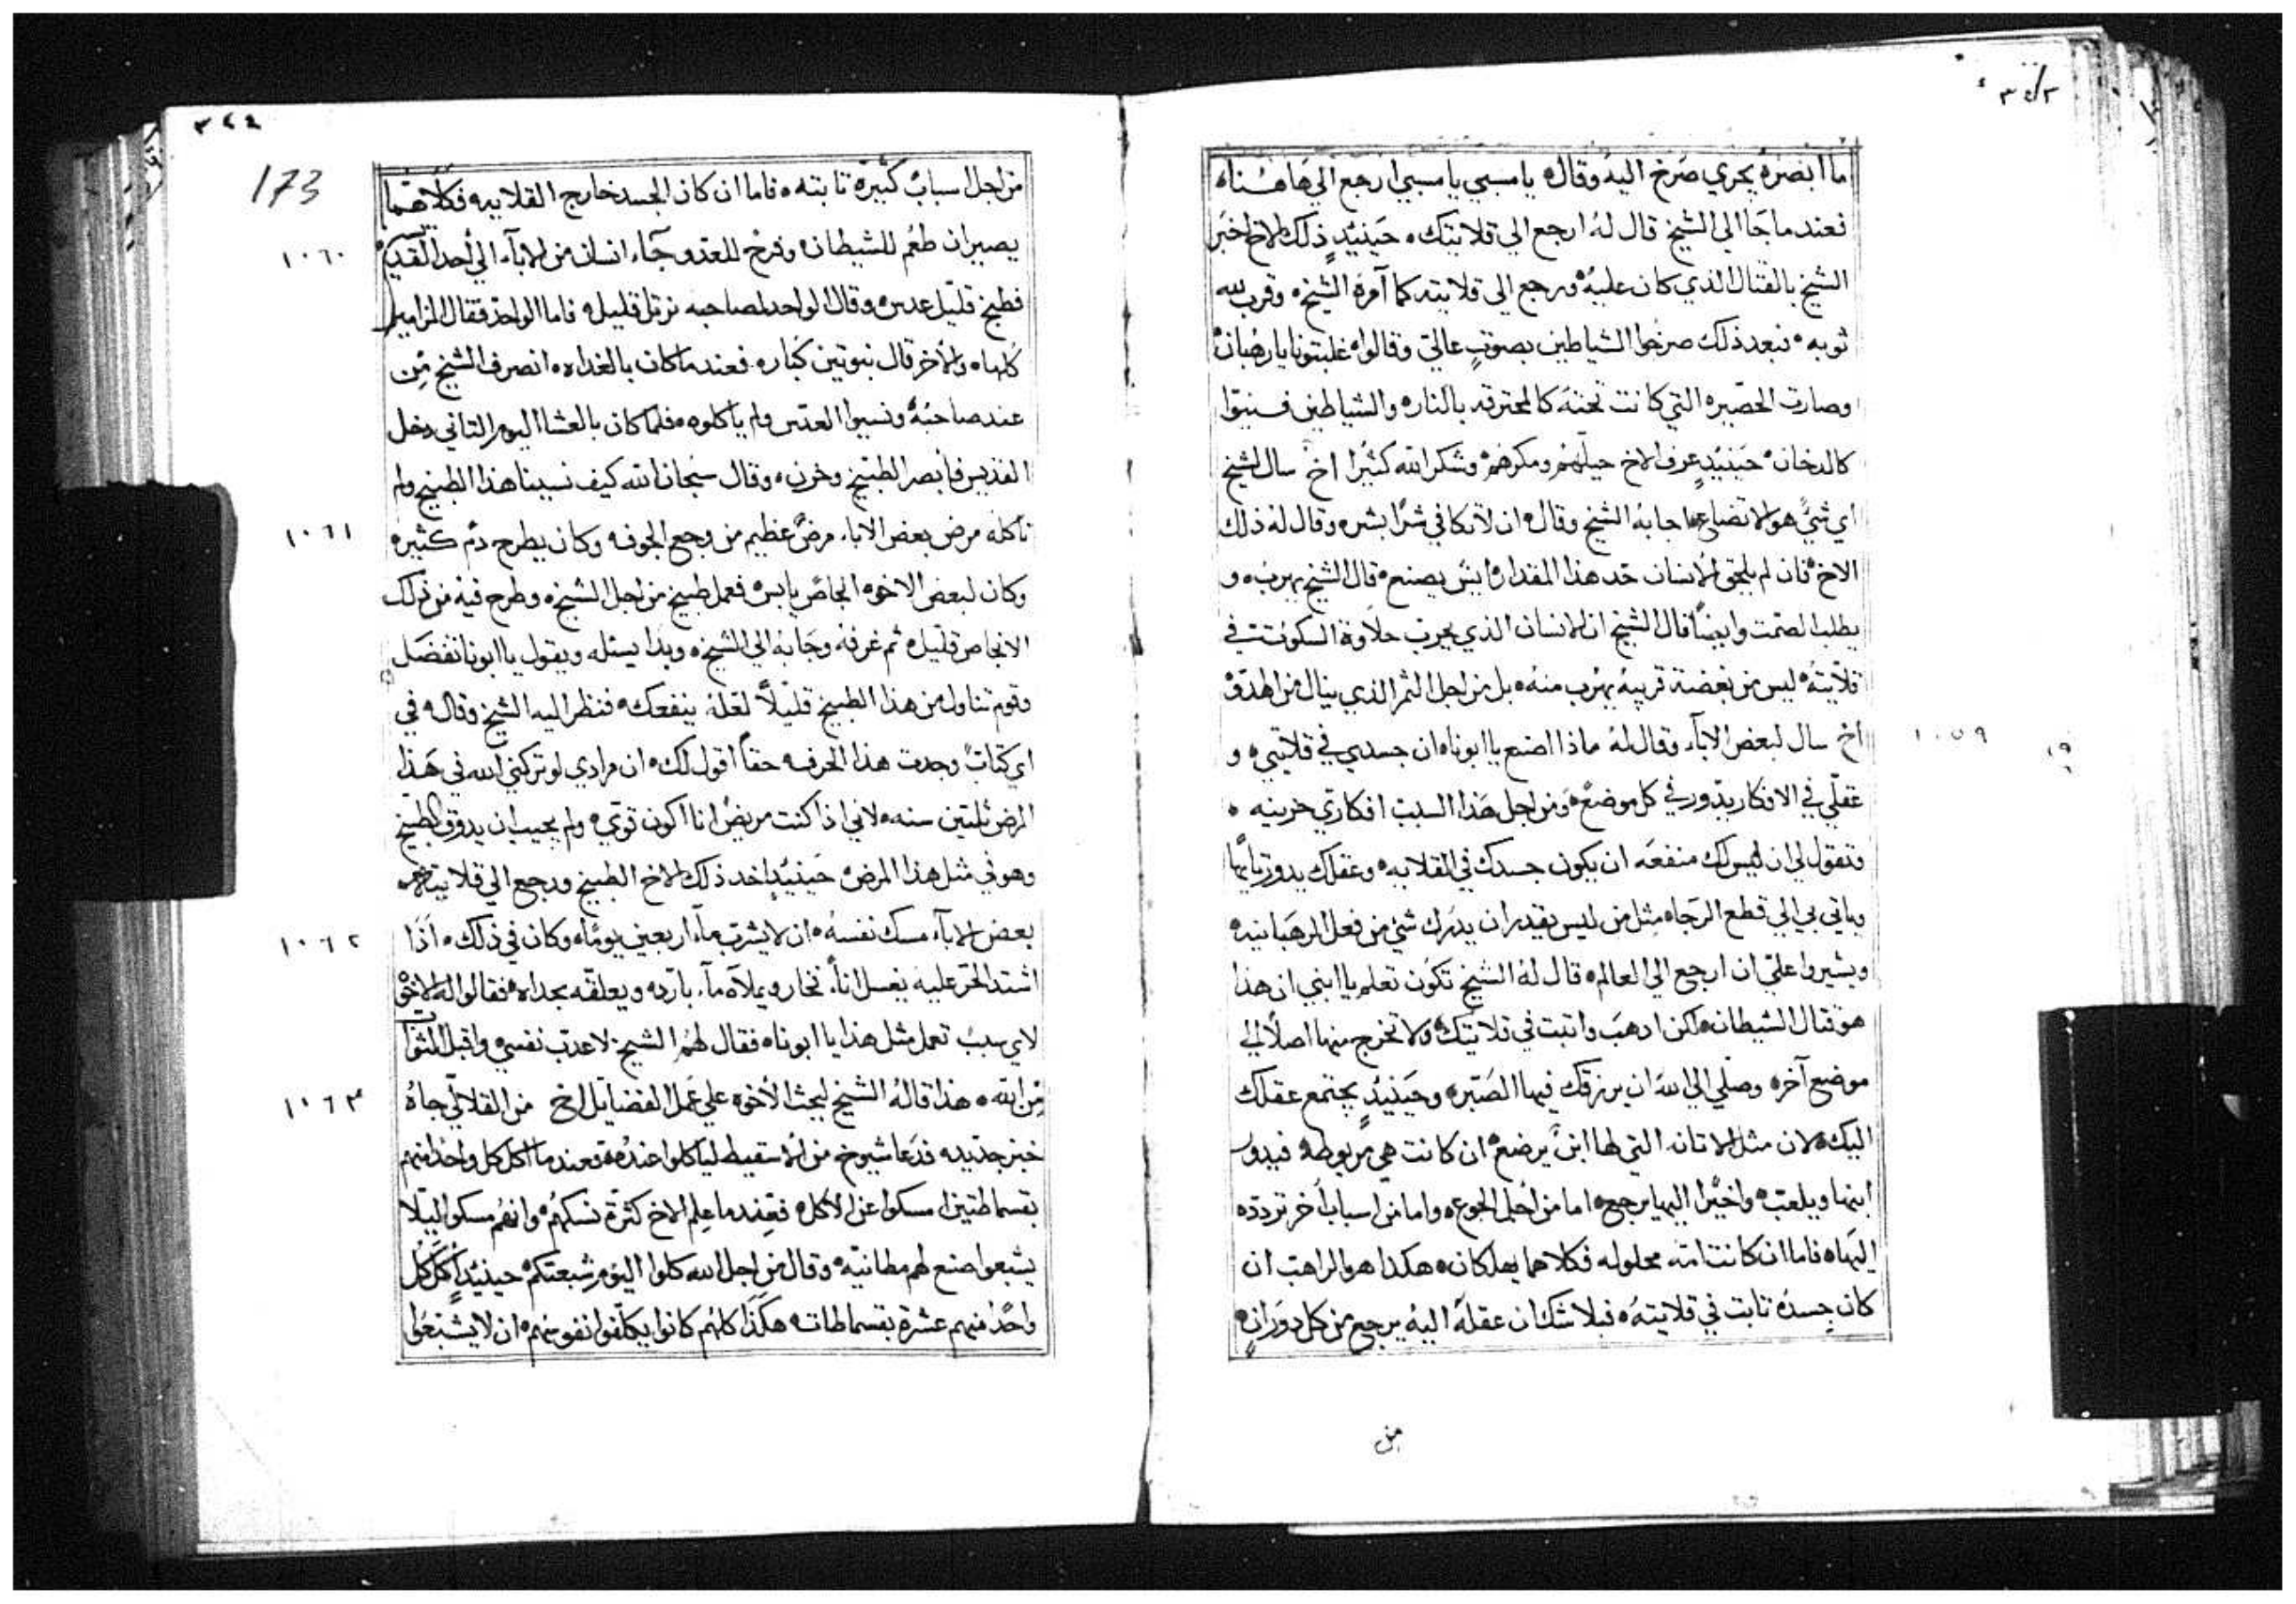 ٣٤٣
ما ابصره يجري صرخ اليه وقال يا مسبي يا مسبي ارجع الي هاهناه
فعند ما جا الي الشيخ قال له ارجع الي قلايتك ه حينيدٍ ذلك الاخ اخبر
الشيخ بالقتال الذي كان عليه ه ورجع الي قلايته كما آمره الشيخ ه وقرب لله
توبه ه فبعد ذلك صرخوا الشياطين بصوتٍ عالي وقالوا ه غلبتونا يا رهبان ه
وصارت الحصيره التي كانت تحته كالمحترقه بالناره والشياطين فنيوا
كالدخان ه حينيدٍ عرف الاخ حيلهم ومكرهم ه وشكر الله كثيرا اخ سال لشيخ
اي شيً هو الاتضاع ه اجابه الشيخ وقال ه ان لا تكافي شرًا بشره وقال له ذلك
الاخ ه فان لم يلحق الانسان حد هذا المقداره ايش يصنع ه قال الشيخ يهرب ه و
يطلب الصمت وايضًا قال الشيخ ان الانسان الذي يجرب حلاوة السكوت في
قلايته ه ليس من بغضة قريبه يهرب منه ه بل من اجل الثمر الذي ينال من الهدو ه
١٠٥٩
اخ سال لبعض الاباء وقال له ماذا اصنع يا ابوناه ان جسدي في قلايتي ه و
عقلي في الافكار يدور في كل موضع ه ومن اجل هذا السبب افكاري حزينه ه
وتقول لي ان ليس لك منفعه ان يكون جسدك في القلايه ه وعقلك يدور تايهًا
وياتي بي الي قطع الرجاه مثل من ليس يقدر ان يدرك شي من فعل الرهبانيه ه
ويشيروا علي ان ارجع الي العالم ه قال له الشيخ تكون تعلم يا ابني ان هذا
هو قتال الشيطان ه لكن ادهب واتبت في قلايتك ه ولا تخرج منها اصلًا الي
موضع آخره وصلي الي الله ان يرزقك فيها الصبره وحينيدٍ يجتمع عقلك
اليك ه لان مثل الاتان التي لها ابن يرضع ه ان كانت هي مربوطه فيدور
ابنها ويلعب ه واخيرًا اليها يرجع ه اما من اجل الجوع ه واما من اسباب اخر تردده
اليها ه فاما ان كانت امه محلوله فكلاهما يهلكان ه هكذا هو الراهب ان
كان جسده تابت في قلايته ه فبلا شك ان عقله اليه يرجع من كل دوران ه
من
٣٤٤
173
من اجل اسباب كثيرة تابته ه فاما ان كان الجسد خارج القلايه ه فكلاهما
١٠٦٠
يصيران طعم للشيطان ه وفرح للعدو جآء انسان من الاباء الي احد القديسين
فطبخ قليل عدس ه وقال الواحد لصاحبه نرتل قليل ه فاما الواحد فقال المزامير
كلهاه والاخر قال نبوتين كباره فعند ما كان بالغداه ه انصرف الشيخ من
عند صاحبه ه ونسيوا العدس ولم ياكلوه ه فلما كان بالعشا اليوم التاني دخل
القديس فابصر الطبيخ وحزن ه وقال سبحان الله كيف نسينا هذا الطبيخ ولم
١٠٦١
ناكله مرض بعض الاباء مرضً عظيم من وجع الجوف ه وكان يطرح دم كثيره
وكان لبعض الاخوه انجاص يابس ه فعمل طبيخ من اجل الشيخ ه وطرح فيه من ذلك
الانجاص قليل ه ثم غرفه وجابه الي الشيخ ه وبدا يسئله ويقول يا ابونا تفضل
وقوم تناول من هذا الطبيخ قليلًا لعله ينفعك ه فنظر اليه الشيخ وقال ه في
اي كتاب وجدت هذا الحرف ه حقًا اقول لك ه ان مرادي لو تركني الله في هذا
المرض ثلتين سنه ه لاني اذا كنت مريض انا اكون قوي ه ولم يجيب ان يدوق الطبيخ
وهو في مثل هذا المرض ه حينيدٍ اخد ذلك الاخ الطبيخ ورجع الي قلايته
١٠٦٢
بعض الاباء مسك نفسه ه ان لا يشرب ماء اربعين يومًا ه وكان في ذلك ه اذا
اشتد الحر عليه يغسل اناء فخار ويملاه ماء بارد ه ويعلقه بحداه ه فقالوا له الاخوه
لاي سبب تعمل مثل هذا يا ابوناه فقال لهم الشيخ لاعدب نفسي واقبل الثواب
١٠٦٣
من الله ه هذا قاله الشيخ ليحث الاخوه علي عمل الفضايل اخ من القلالي جاه
خبز جديد ه فدعا شيوخ من الاسقيط لياكلوا عنده ه فعند ما اكل كل واحد منهم
بقسماطتين امسكوا عن الاكل ه فعند ما علم الاخ كثرة نسكهم ه وانهم مسكوا ليلا
يشبعوا صنع لهم مطانيه ه وقال من اجل الله كلوا اليوم شبعتكم ه حينيدٍ اكل كل
واحدًا منهم عشرة بقسماطات ه هكذا كلهم كانوا يكلفوا نفوسهم ه ان لا يشبعوا